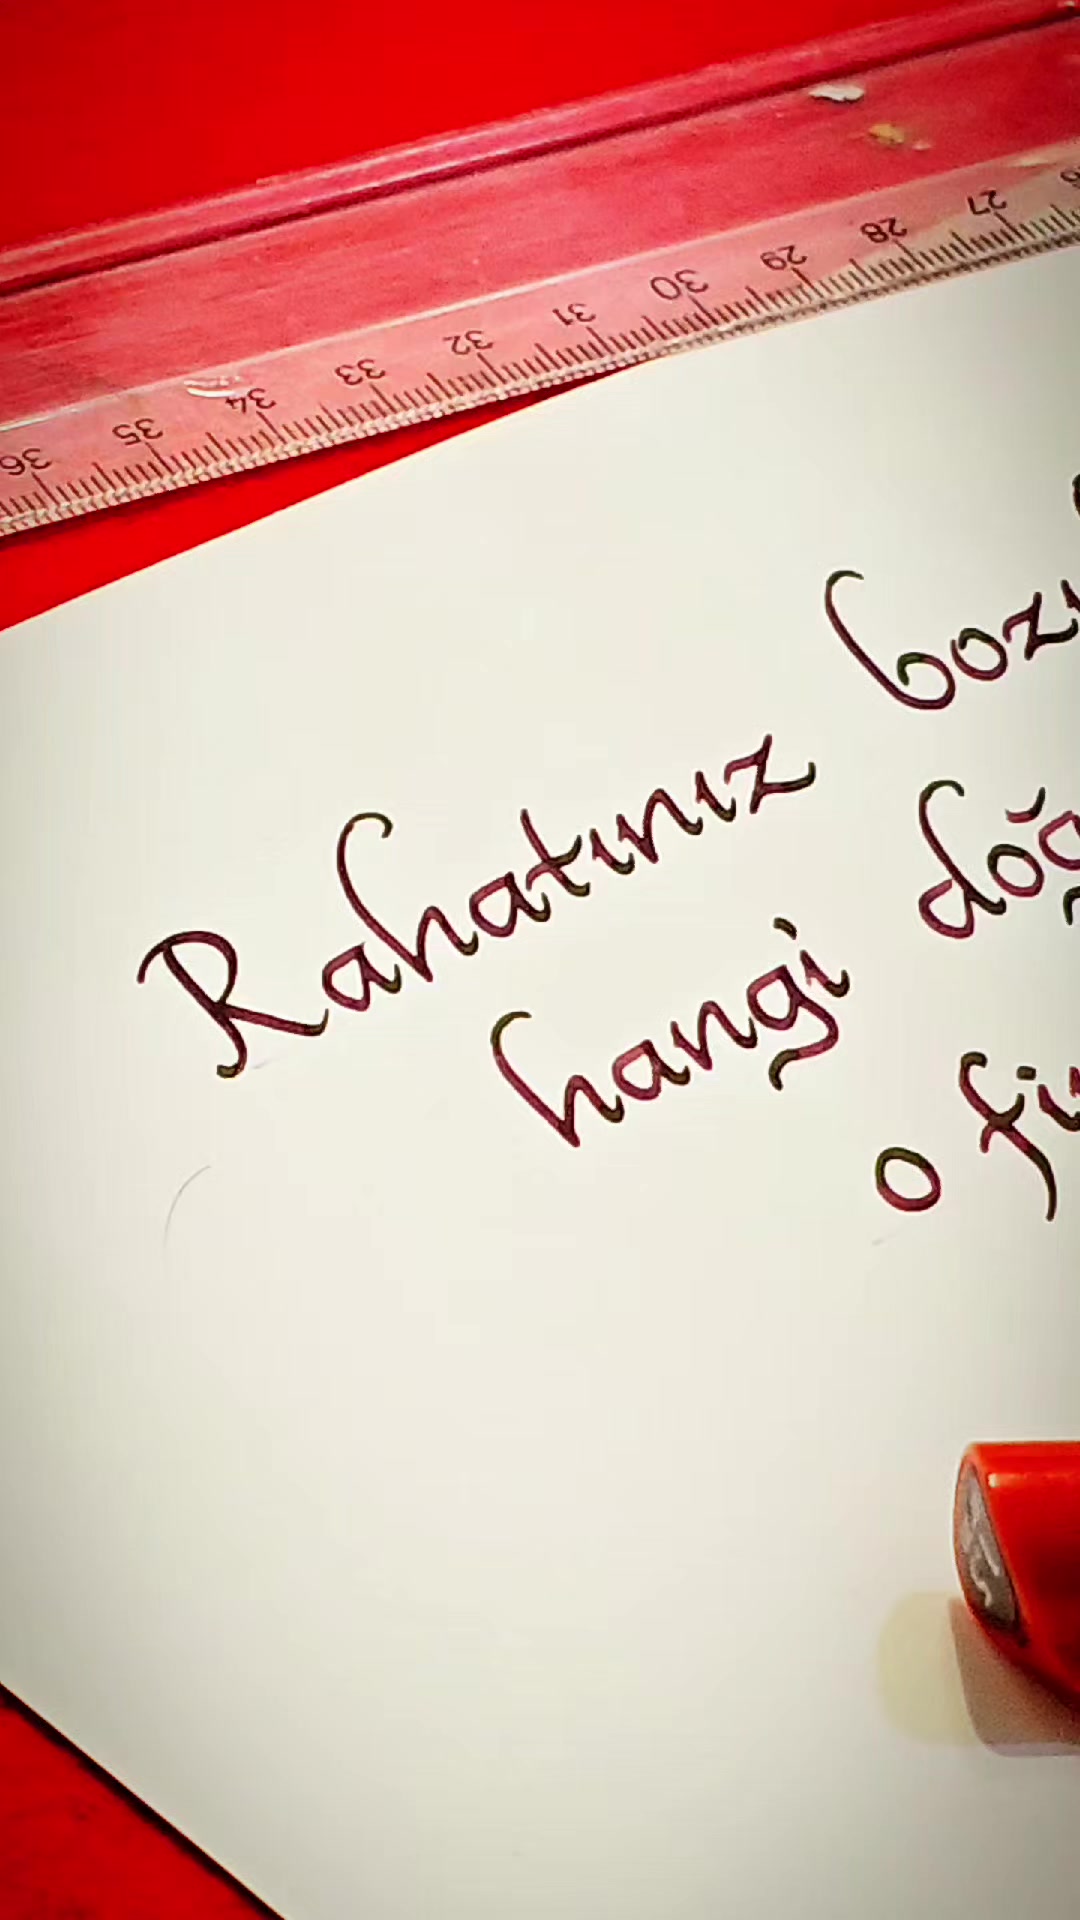 36 35 34 33 32 31 30 29 28 27
Rahatınız bozu
hangi doğ
o fı